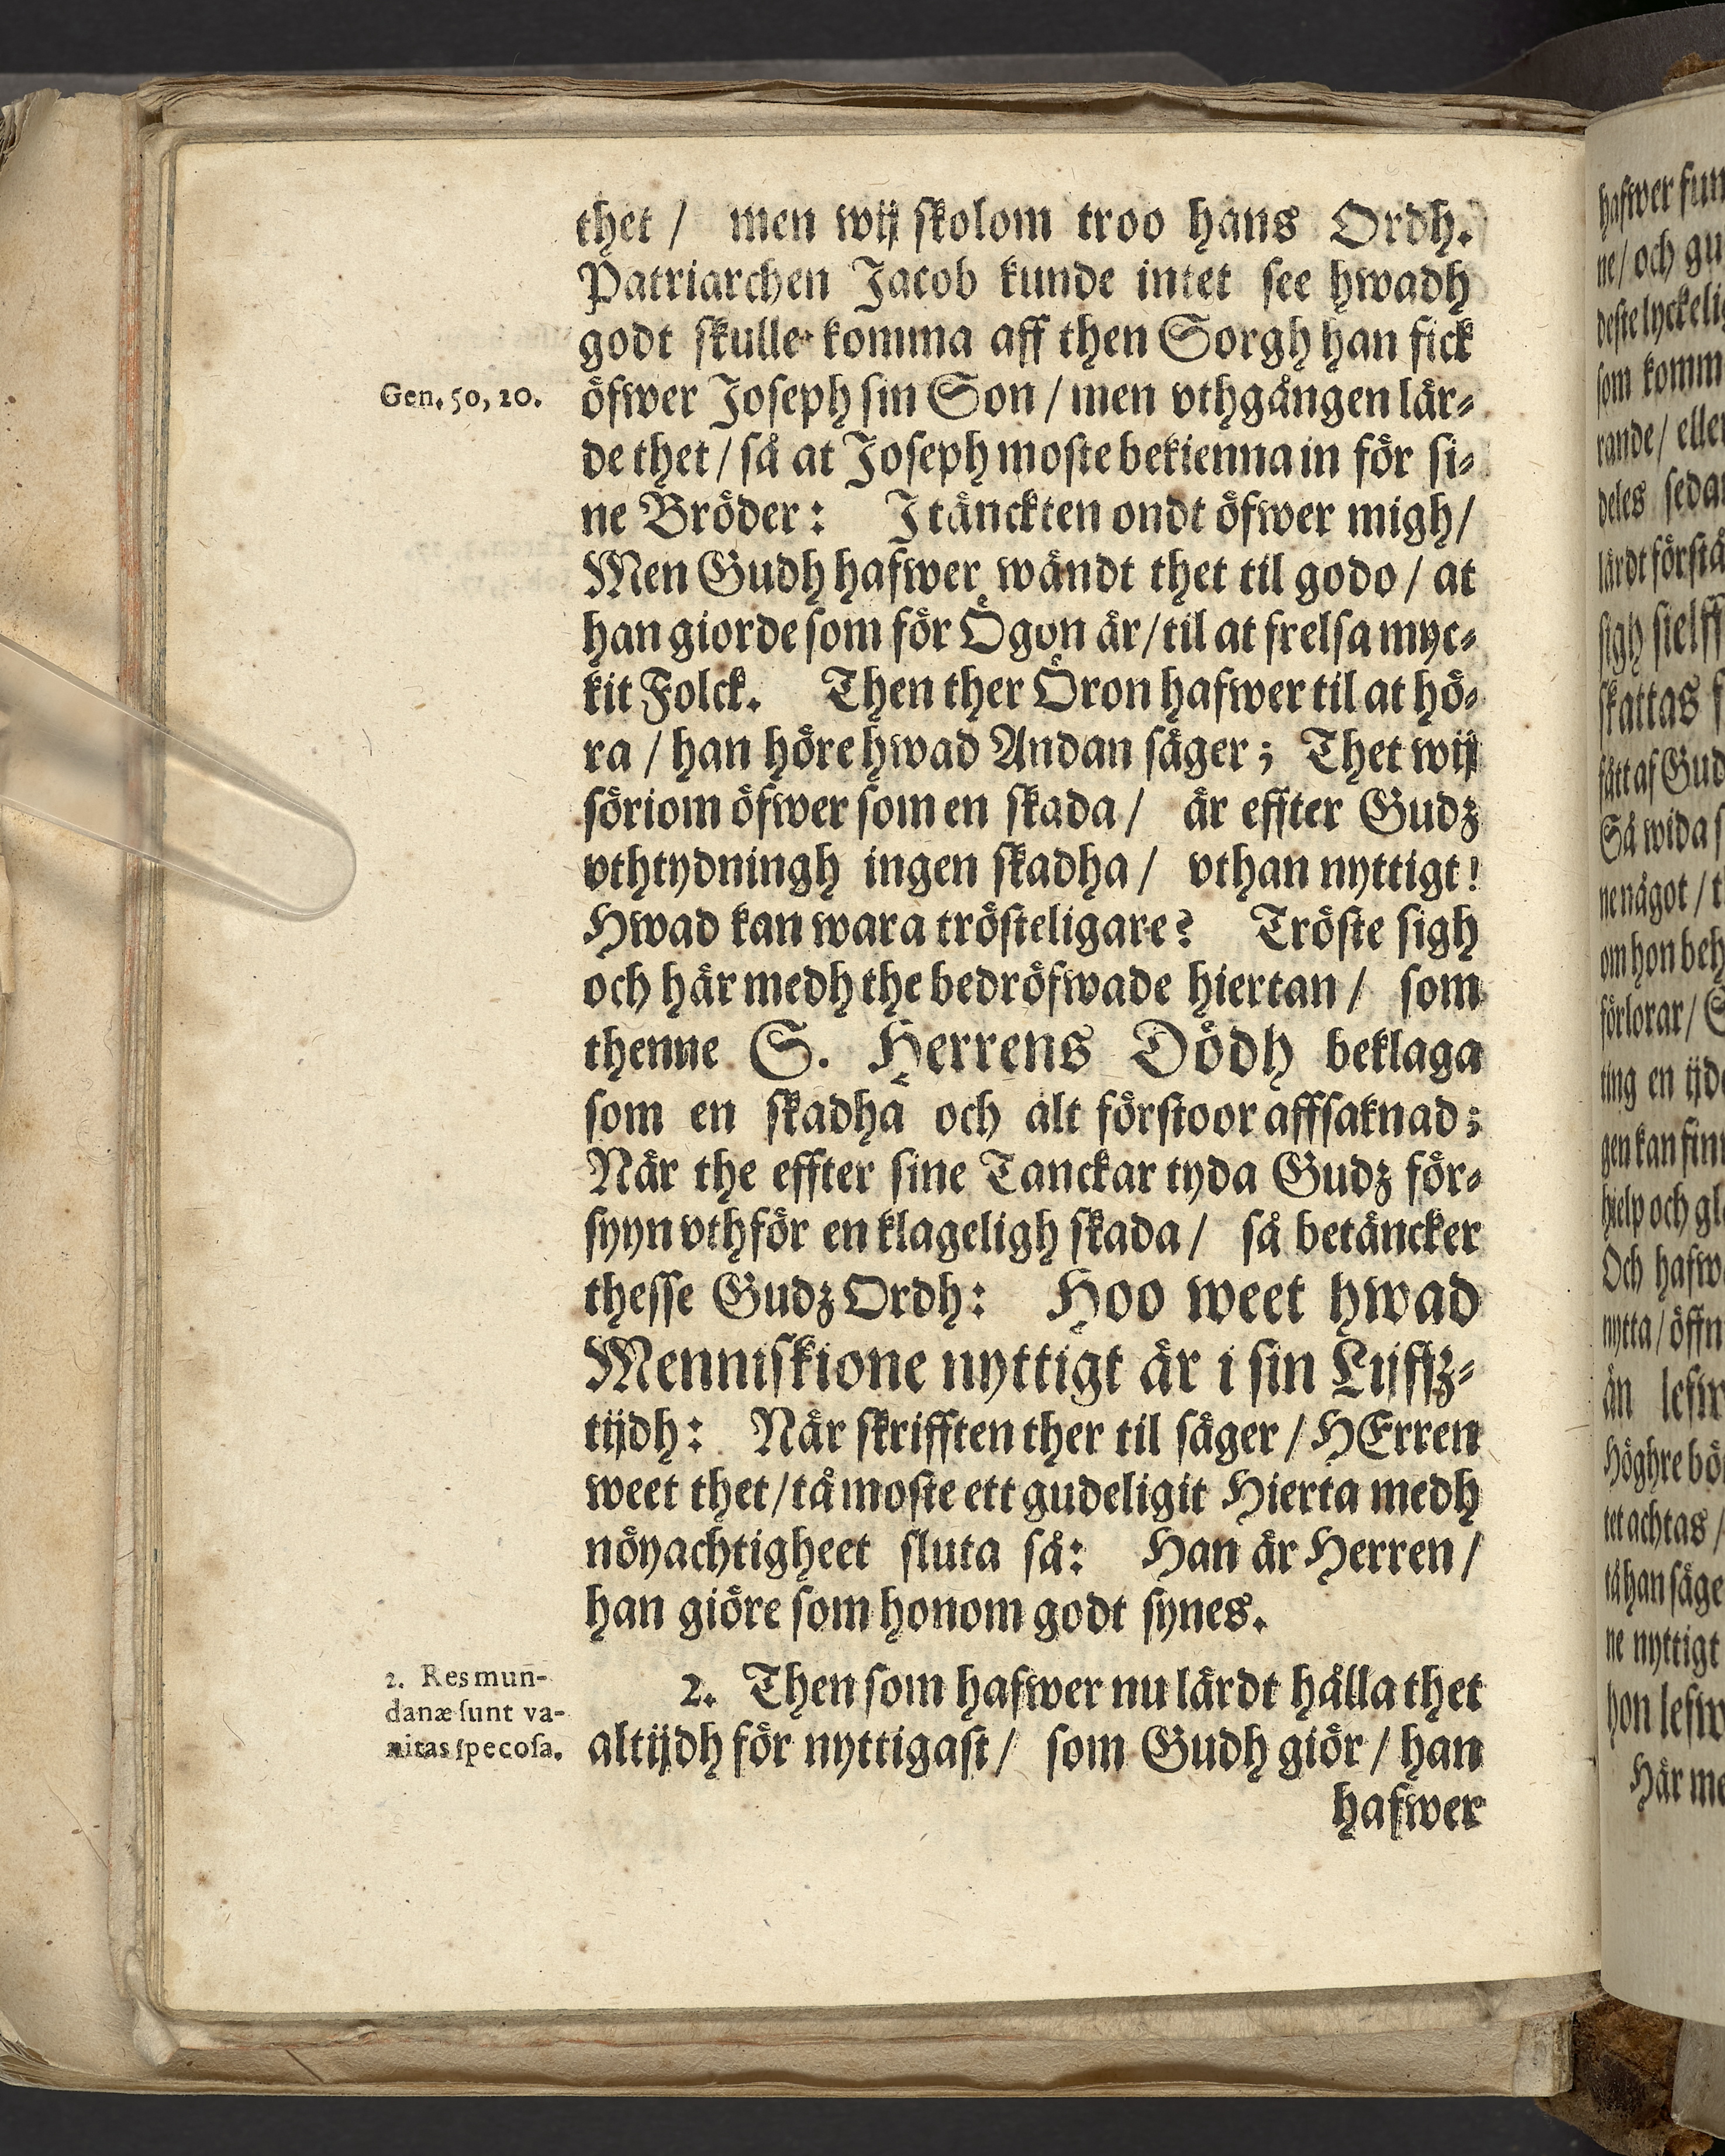 thet / men wij skolom troo hans Ordh.
Patriarchen Jacob kunde intet see hwadh
godt skulle komma aff then Sorgh han fick
Gen. 50, 20.
öfwer Joseph sin Son / men vthgången lär-
de thet / så at Joseph moste bekienna in för si-
ne Bröder: J tänckten ondt öfwer migh /
Men Gudh hafwer wändt thet til godo / at
han giorde som för Ögon är / til at frelsa myc-
kit Folck. Then ther Öron hafwer til at hö-
ra / han höre hwad Andan säger; Thet wij
söriom öfwer som en skada / är effter Gudz
vthtydningh ingen skadha / vthan nyttigt!
Hwad kan wara trösteligare? Tröste sigh
och här medh the bedröfwade hiertan / som
thenne S. Herrens Dödh beklaga
som en skadha och alt förstoor affsaknad;
När the effter sine Tanckar tyda Gudz för-
syyn vthför en klageligh skada / så betäncker
thesse Gudz Ordh: Hoo weet hwad
Menniskione nyttigt är i sin Lijffz-
tijdh: När skrifften ther til säger / HErren
weet thet / tå moste ett gudeligit Hierta medh
nöyachtigheet sluta så: Han är Herren /
han giöre som honom godt synes.
2. Res mun-
danæ sunt va-
nitas specosa.
2. Then som hafwer nu lärdt hålla thet
altijdh för nyttigast / som Gudh giör / han
hafwer
ne / och
som
rande /
deles
skattas
Så wida
ne något /
förlorar /
ting en
hielp och
Och
nytta /
än
tet achtas /
ne nyttigt